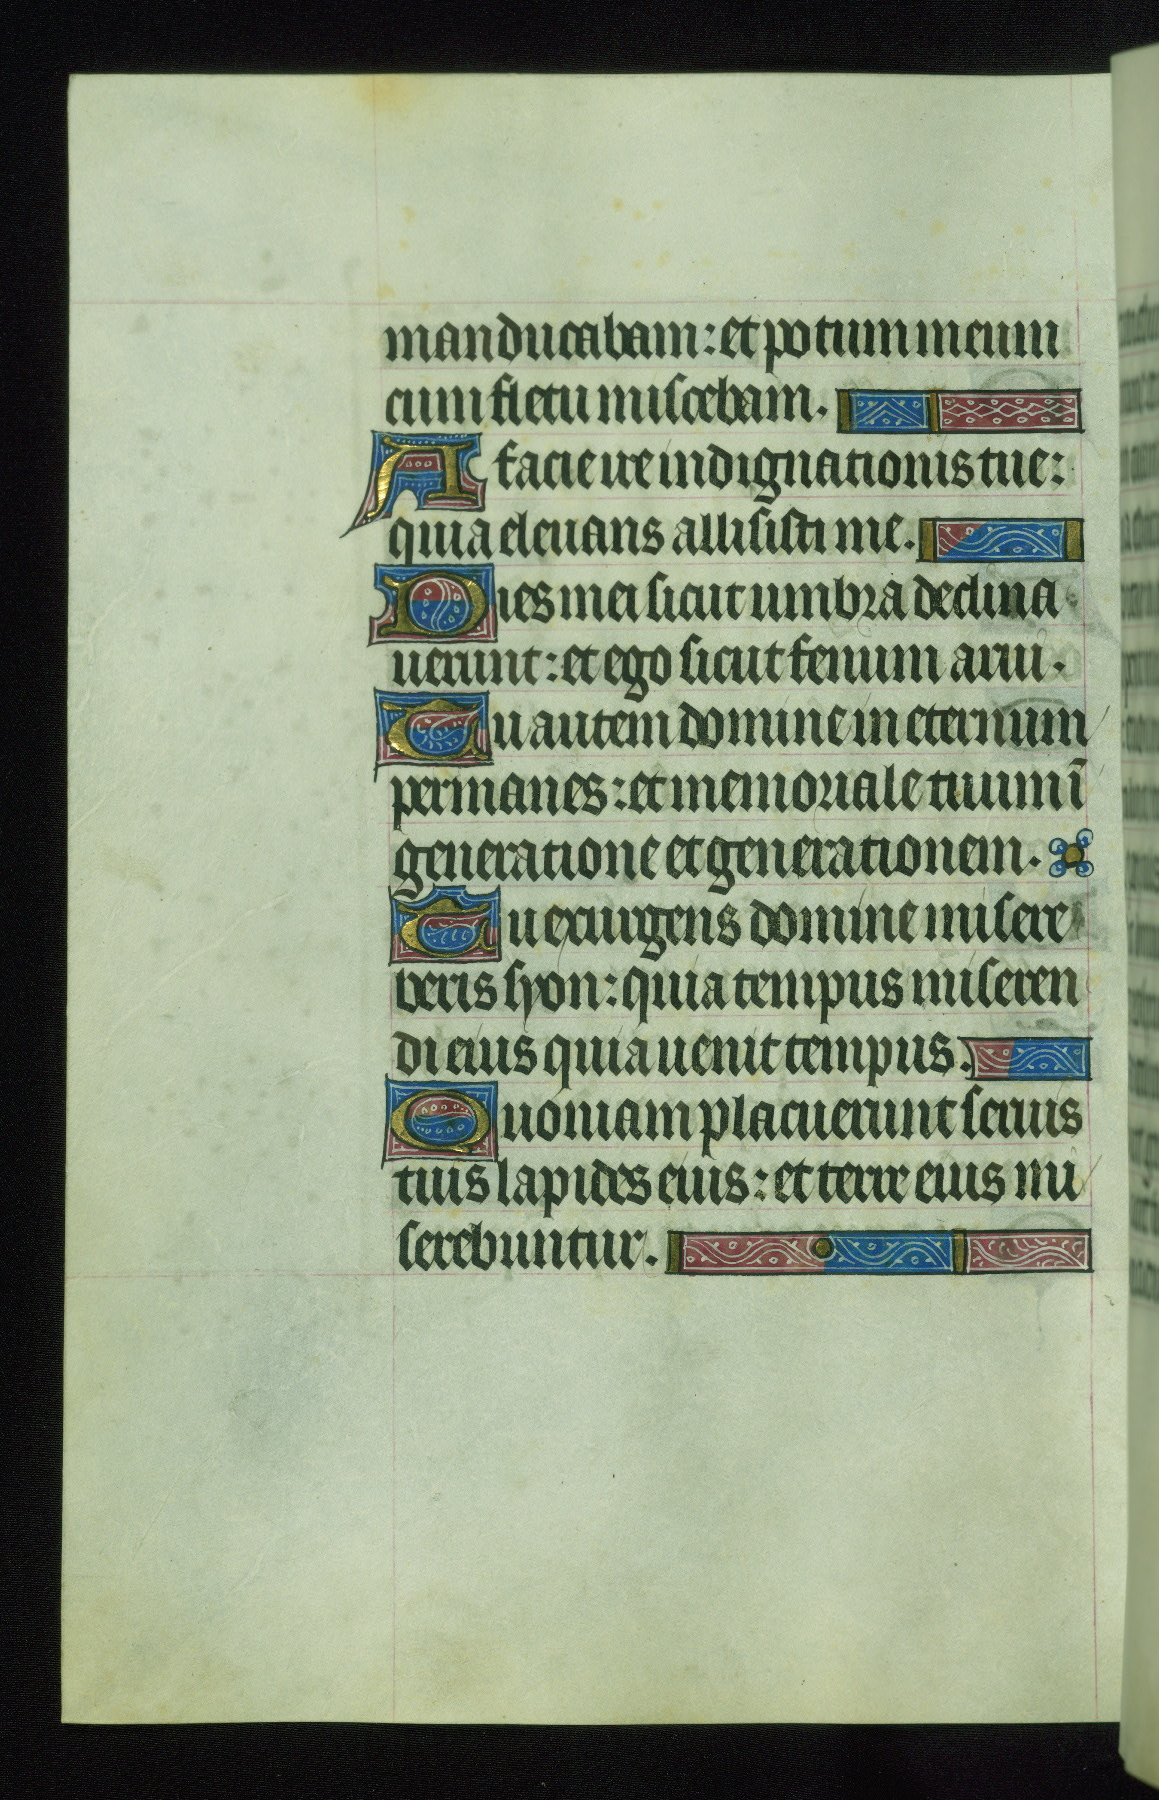 manducabam: et potum meum
cum fletu miscebam.
A facie ire indignationis tue:
quia eleuans allisisti me.
Dies mei sicut umbra declina
uerunt: et ego sicut fenum arui.
Tu autem domine in eternum
permanes: et memoriale tuum ī
generatione et generationem.
Tu exurgens domine misere
beris syon: quia tempus miseren
di eius quia uenit tempus.
Quoniam placuerunt seruis
tuis lapides eius: et terre eius mi
serebuntur.